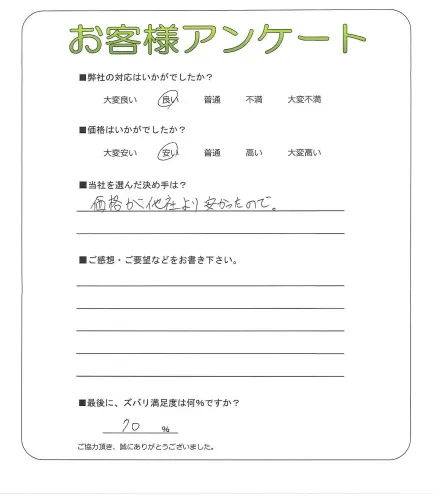 お客様アンケート
■弊社の対応はいかがでしたか？
大変良い 良い 普通 不満 大変不満
■価格はいかがでしたか？
大変安い 安い 普通 高い 大変高い
■当社を選んだ決め手は？
価格が他社より安かったので。
■ご感想・ご要望などをお書き下さい。
■最後に、ズバリ満足度は何％ですか？
70 ％
ご協力頂き、誠にありがとうございました。